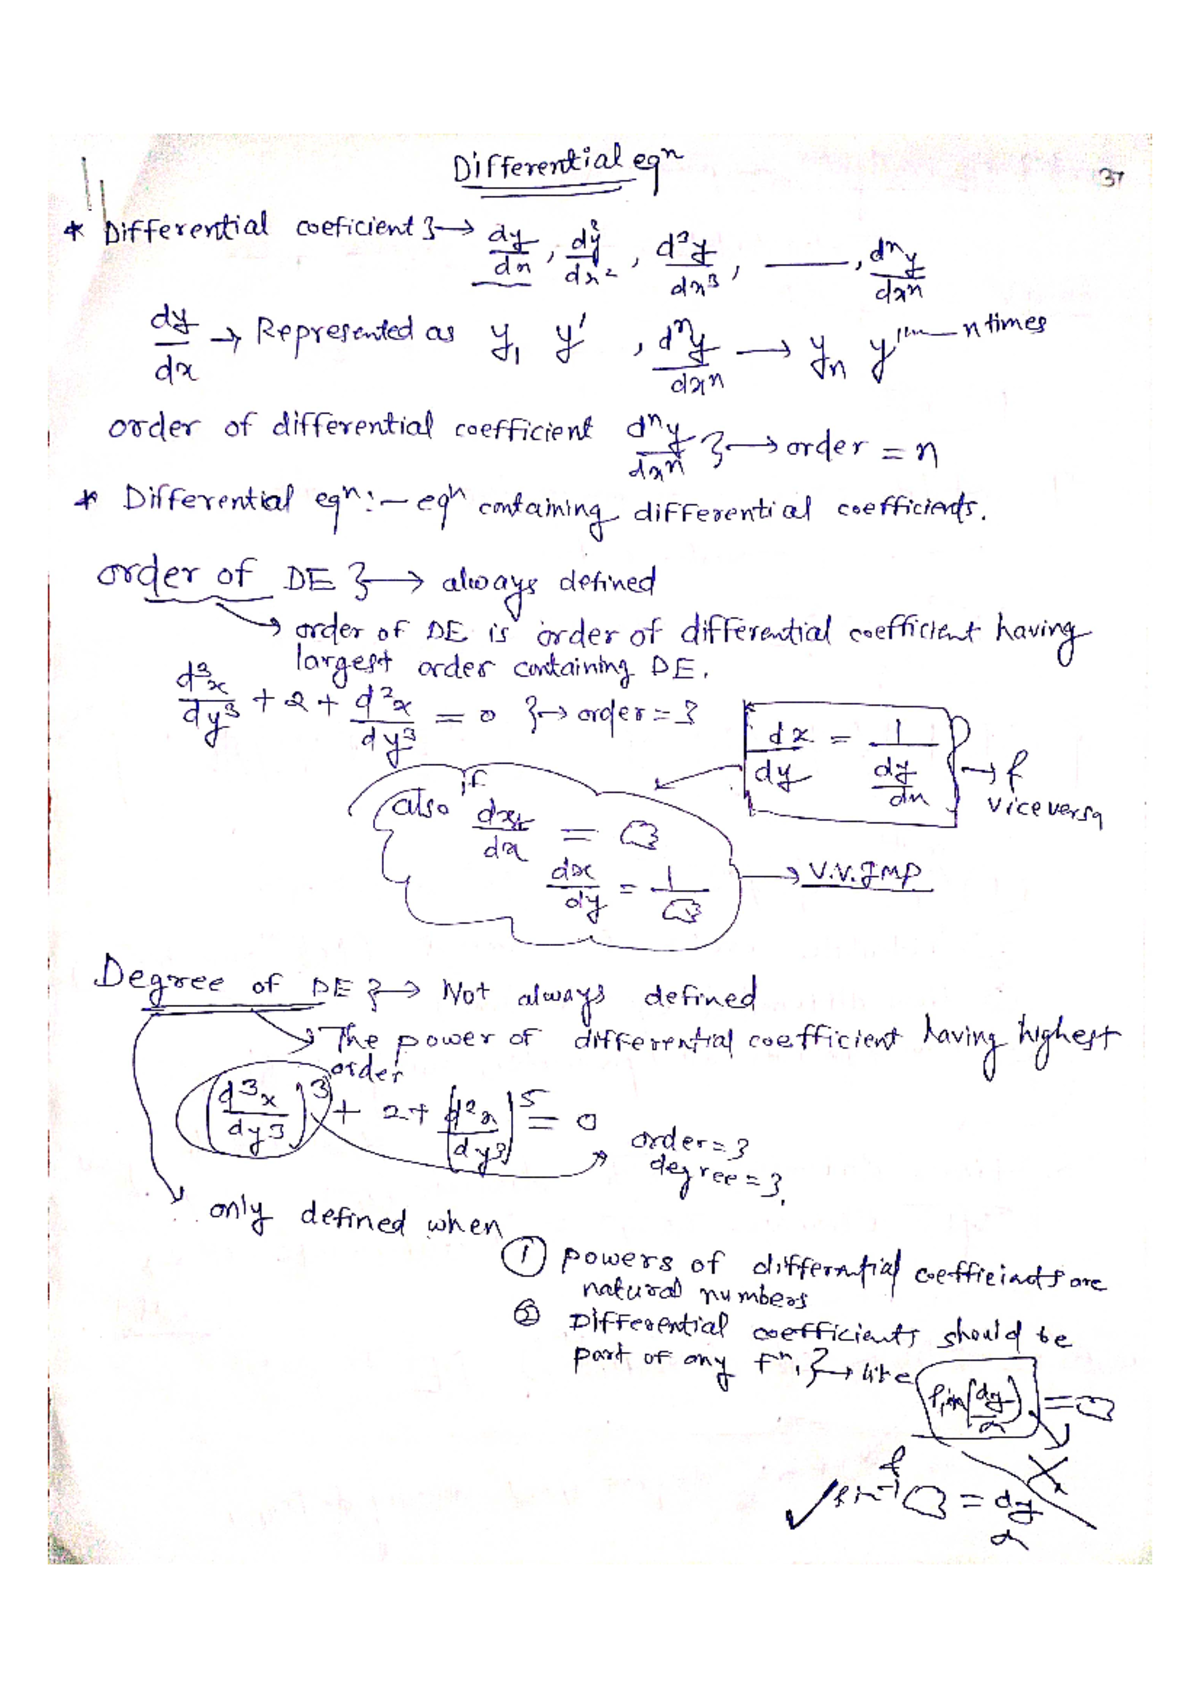 Differential eqn
37
* Differential coeficient }→ dy/dn , d²y/dx² , d³y/dx³ , ——— , dⁿy/dxⁿ
dy/dx → Represented as y₁ y' , dⁿy/dxⁿ → yₙ y''''— n times
order of differential coefficient dⁿy/dxⁿ }→ order = n
* Differential eqn :– eqn containing differential coefficients.
order of DE }→ always defined
→ order of DE is order of differential coefficient having
largest order containing DE.
d³x/dy³ + 2 + d²x/dy³ = 0 }→ order = 3
dx/dy = 1/(dy/dn) → & vice versa
also if
dy/dx =
dx/dy = 1/
→ V.V.Imp
Degree of DE }→ Not always defined
→ The power of differential coefficient having highest
order
(d³x/dy³)³ + 2 + (d²x/dy³)⁵ = 0
order = 3
degree = 3.
only defined when
① powers of differential coefficients are
natural numbers
② Differential coefficients should be
part of any fn, }→ like
sin(dy/x) =
sin⁻¹ = dy/x